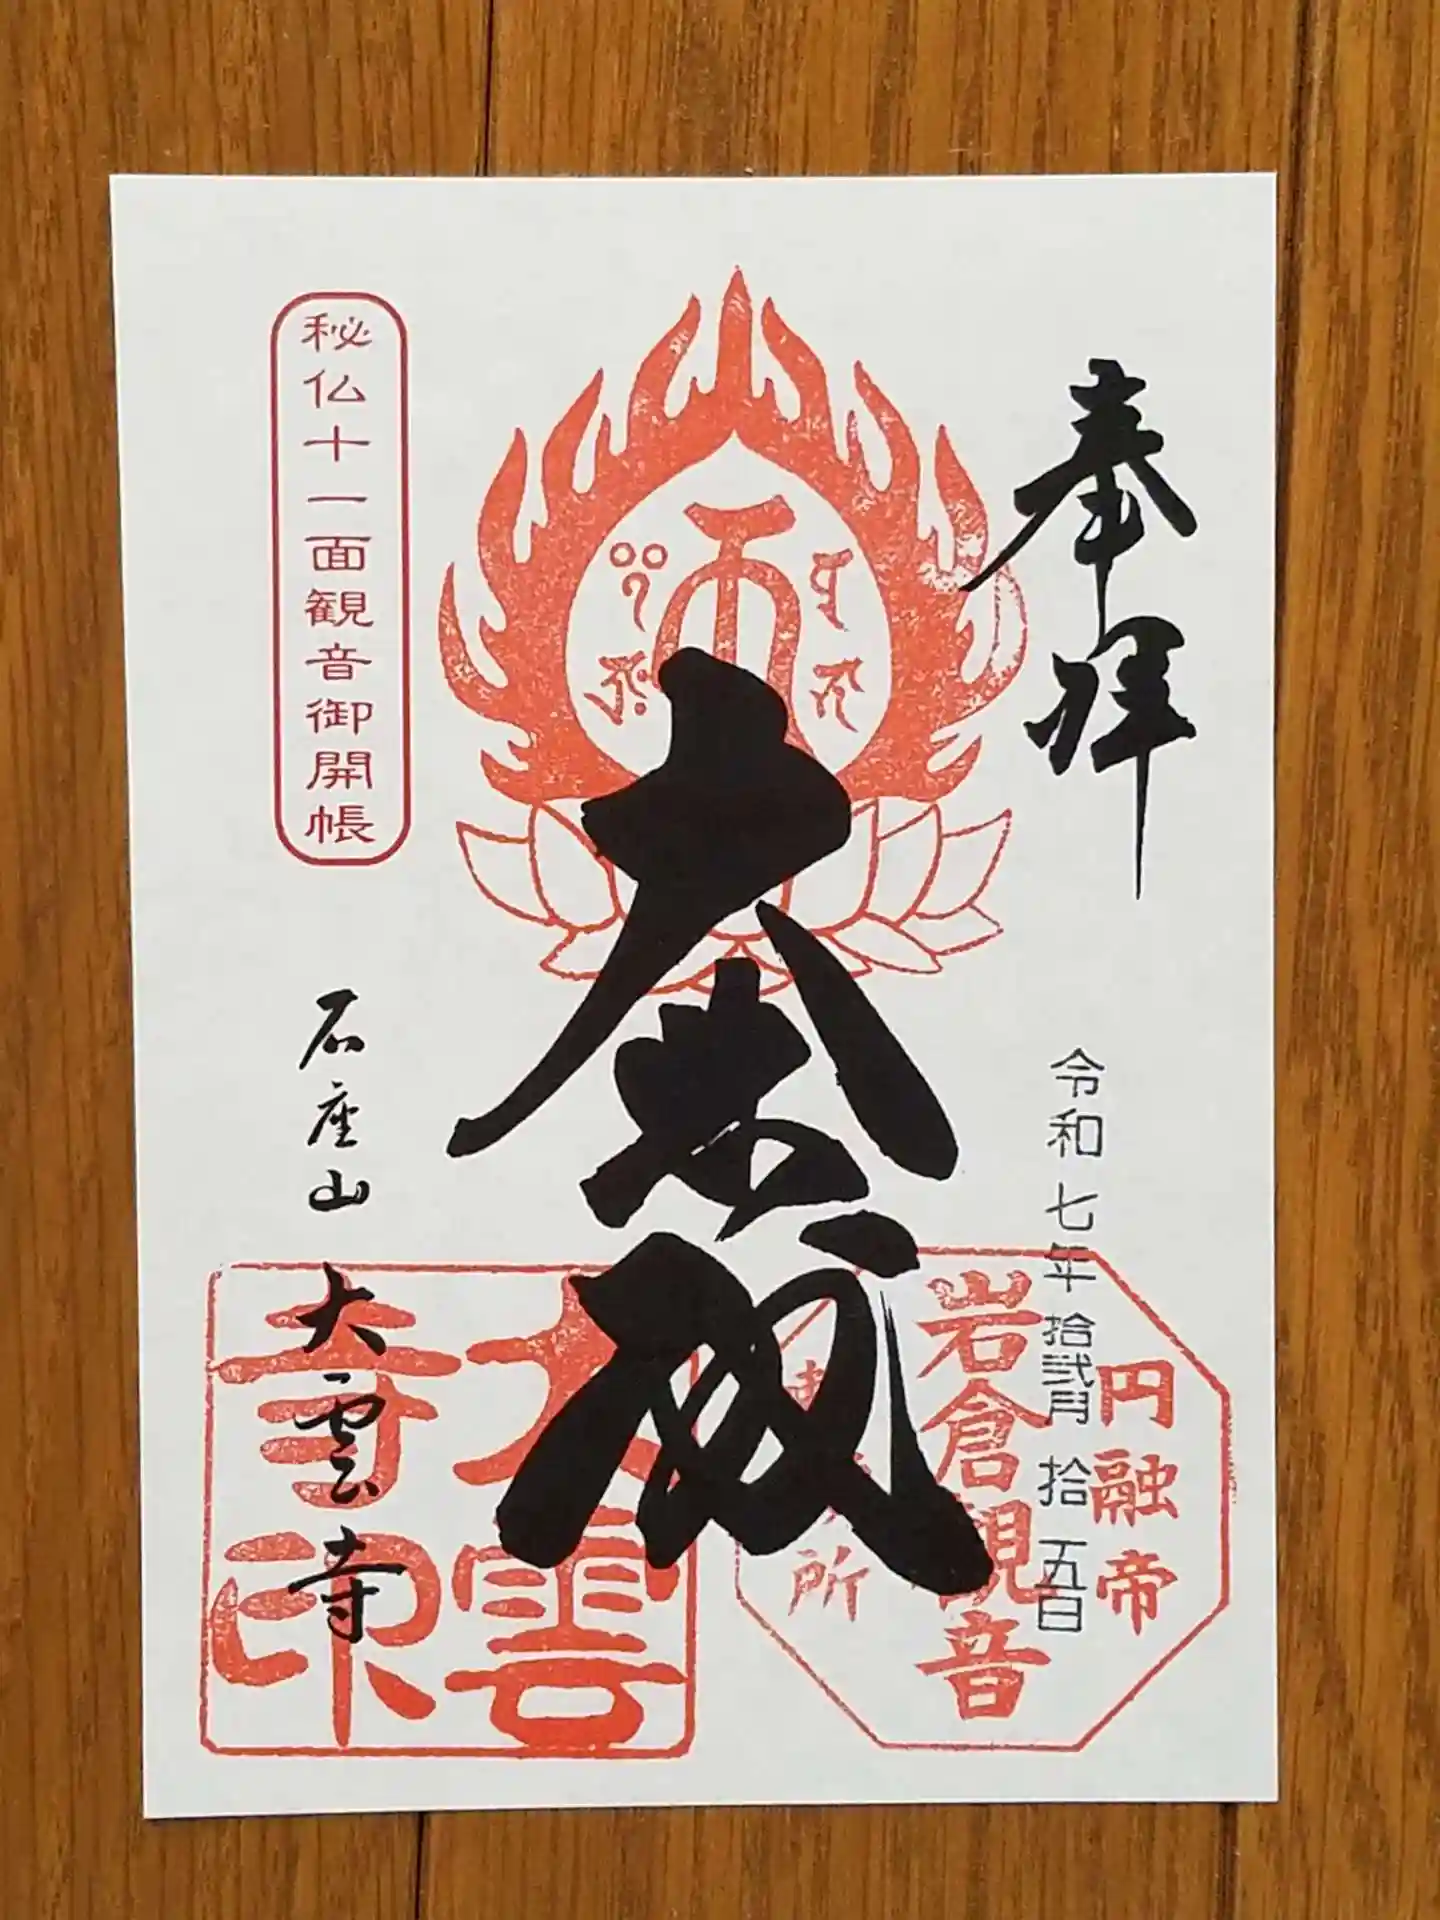 奉拝
令和七年拾弐月拾五日
円融帝
岩倉観音
所
大悲殿
大雲
寺印
秘仏十一面観音御開帳
石座山 大雲寺